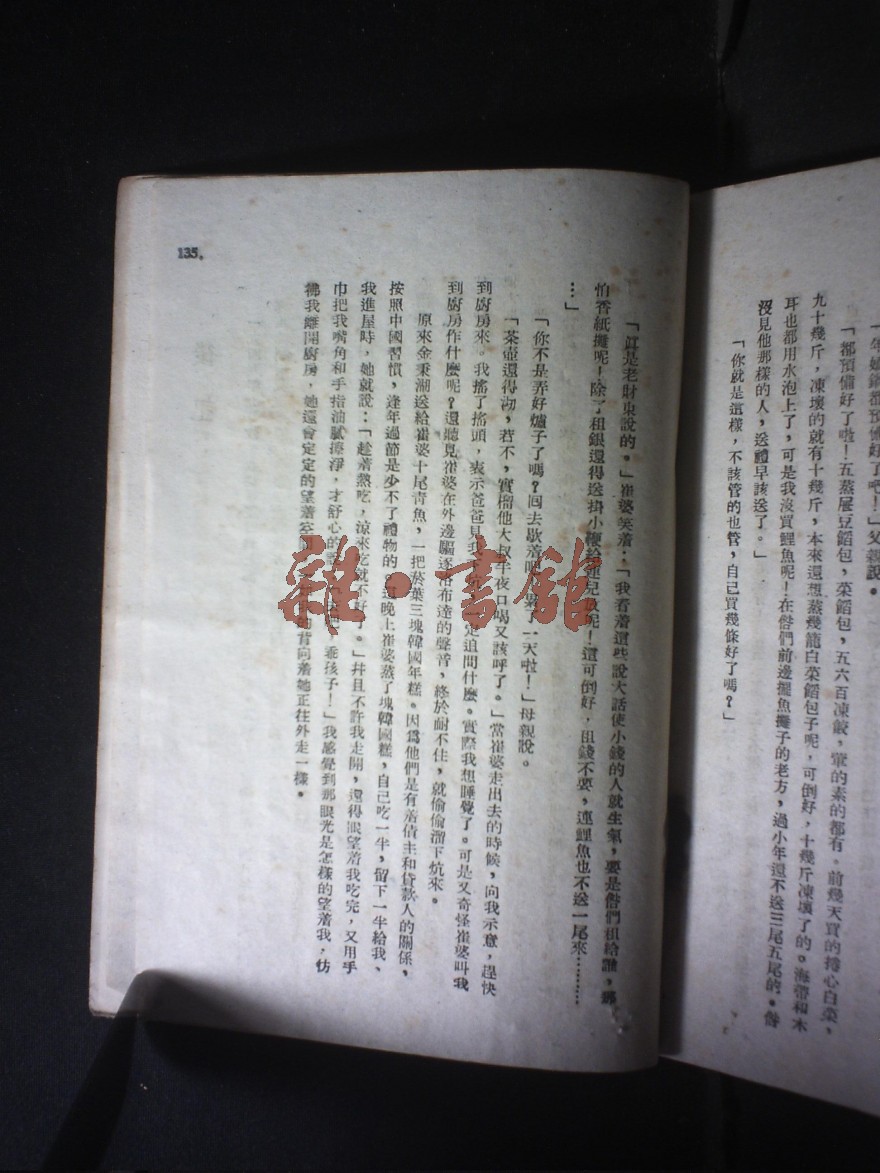 年嬸鍋都預備好了吧！」父親說。
「都預備好了啦！五蒸屜豆餡包，菜餡包，五六百凍餃，葷的素的都有。前幾天買的捲心白菜，
九十幾斤，凍壞的就有十幾斤，本來還想蒸幾籠白菜餡包子呢，可倒好，十幾斤凍壞了的。海帶和木
耳也都用水泡上了，可是我沒買鯉魚呢！在咱們前邊擺魚攤子的老方，過小年還不送三尾五尾的。咱
沒見他那樣的人，送禮早該送了。」
「你就是這樣，不該管的也管，自己買幾條好了嗎？」
「眞是老財東說的。」崔婆笑着：「我看着這些說大話使小錢的人就生氣，要是咱們租給誰，那
怕香紙攤呢！除了租銀還得送掛小鞭給連兒放呢！這可倒好，租錢不要，連鯉魚也不送一尾來………
…」
「你不是弄好爐子了嗎？回去歇着吧，累了一天啦！」母親說。
「茶壺還得沏，若不，實榴他大叔半夜口喝又該呼了。」當崔婆走出去的時候，向我示意，趕快
到廚房來。我搖了搖頭，表示爸爸見我 定追問什麼。實際我想睡覺了。可是又奇怪崔婆叫我
到廚房作什麼呢？還聽見崔婆在外邊驅逐 布達的聲音，終於耐不住，就偷偷溜下炕來。
原來金秉湖送給崔婆十尾青魚，一把菸葉三塊韓國年糕。因爲他們是有着債主和貸款人的關係，
按照中國習慣，逢年過節是少不了禮物的。這晚上崔婆蒸了塊韓國糕，自己吃一半，留下一半給我、
我進屋時，她就說：「趁着熱吃，涼來吃就不好了。」幷且不許我走開，還得眼望着我吃完，又用手
巾把我嘴角和手指油膩擦淨，才舒心的說： 乖孩子！」我感覺到那眼光是怎樣的望着我，仿
彿我離開廚房，她還會定定的望着空 的背向着她正往外走一樣。
135.
雜·書館